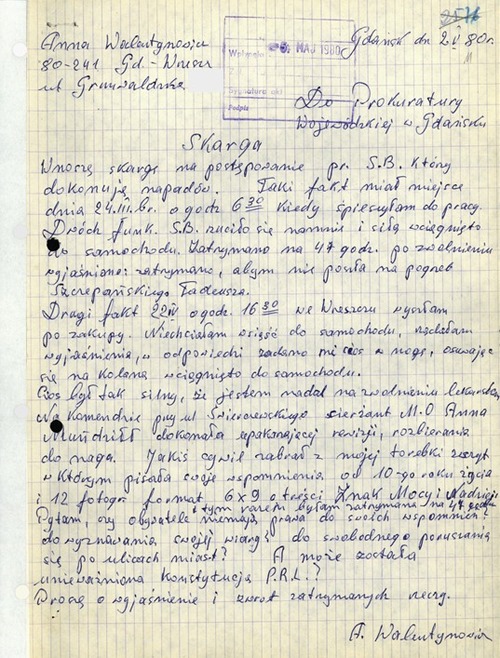 25
Anna Walentynowicz
80-241 Gd-Wrzeszcz
ul Grunwaldzka
Wpłynęło 5. MAJ 1980
Sygnatura akt
Podpis
Gdańsk dn 2 V 80r.
Do Prokuratury
Wojewódzkiej w Gdańsku
Skarga
Wnoszę skargę na postępowanie pr. S.B. który
dokonują napadów. Taki fakt miał miejsce
dnia 24.III.br. o godz 6 30 kiedy śpieszyłam do pracy.
Dwóch funk. S.B. rzuciło się na mnie i siłą wciągnięto
do samochodu. Zatrzymano na 47 godz. po zwolnieniu
wyjaśniono: zatrzymano, abym nie poszła na pogrzeb
Szczepańskiego Tadeusza.
Drugi fakt 22 IV o godz. 16 30 we Wrzeszczu wyszłam
po zakupy. Niechciałam wsiąść do samochodu, żądałam
wyjaśnienia, w odpowiedzi zadano mi cios w nogę, osuwając
się na kolana wciągnięto do samochodu.
Cios był tak silny, że jestem nadal na zwolnieniu lekarskim
Na komendzie przy ul Świerczewskiego sierżant M.O Anna
dokonała upakarzającej rewizji, rozbierania
do naga. Jakiś cywil zabrał z mojej torebki zeszyt
w którym pisałam swoje wspomnienia od 10-go roku życia
i 12 fotogr. format 6x9 o treści Znak Mocy i Nadzieji
tym razem byłam zatrzymana na 47 godzin
Pytam, czy obywatele niemają prawa do swoich wspomnień?
do wyznawania swojej wiary? do swobodnego poruszania
się po ulicach miast? A może została
unieważniona Konstytucja P.R.L.?
Proszę o wyjaśnienie i zwrot zatrzymanych rzeczy.
A. Walentynowicz